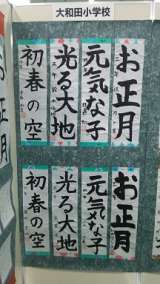 大和田小学校
お正月
元気な子
光る大地
初春の空
お正月
元気な子
光る大地
初春の空